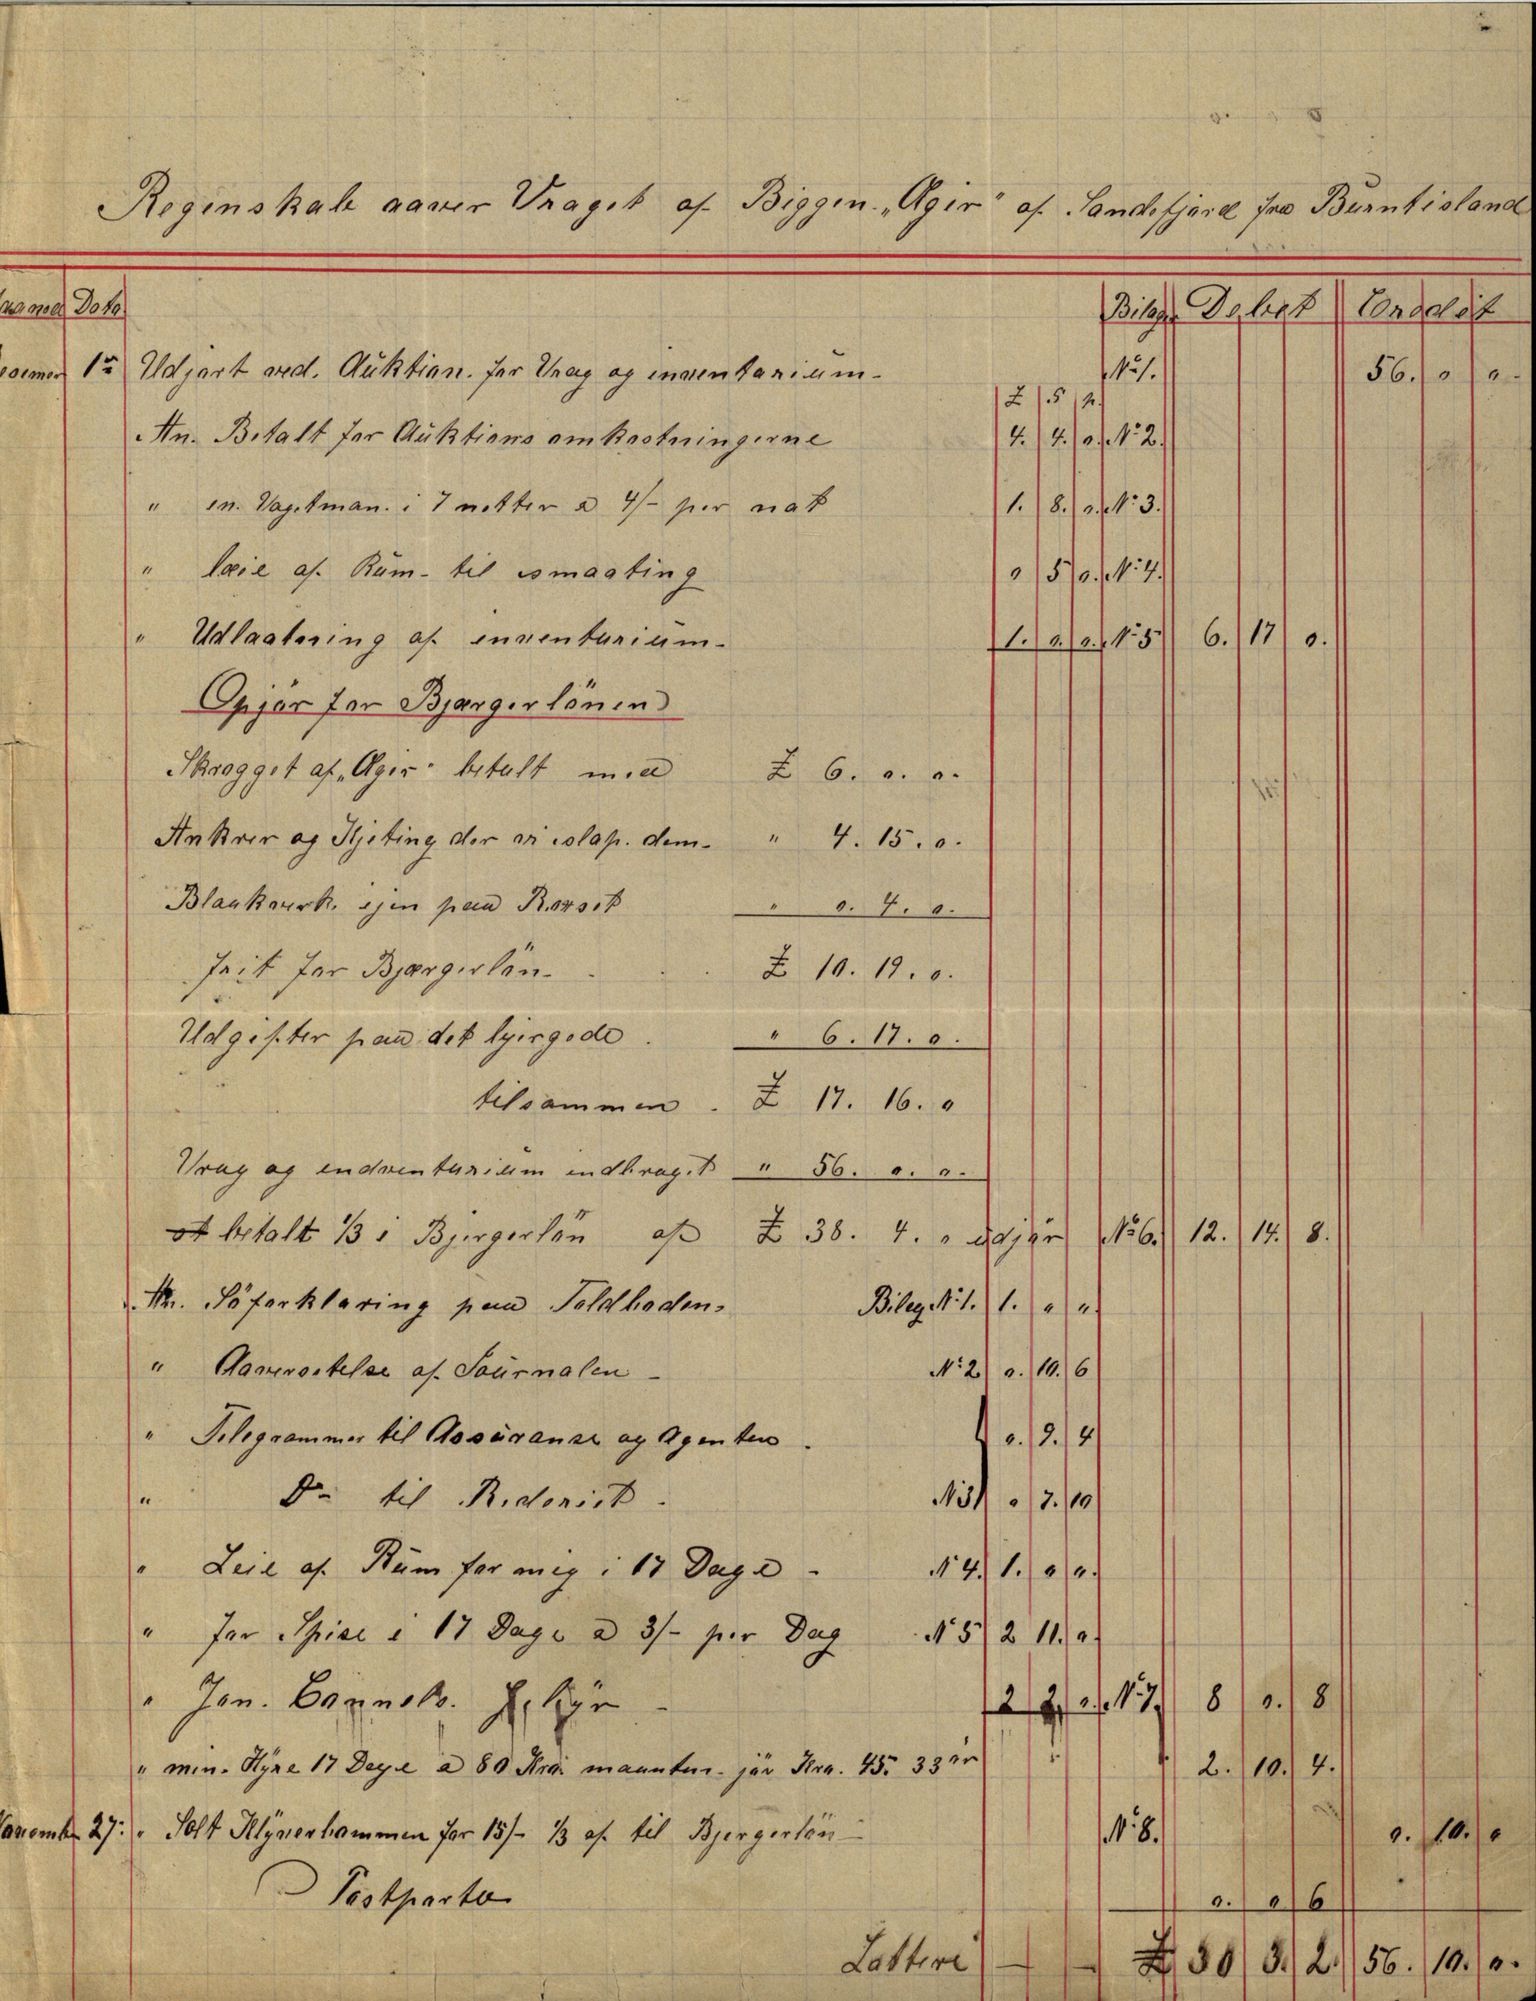 Regenskab aaver Vraget af Biggen „Ægir" af Sandefjord fra Burntisland
Data Bilage Debet Credit
1ste Udjort ved. Auktion. for Vrag og inventarium - No 1. 56. 0 0
£ S p.
An. Betalt for Auktions omkostningerne 4. 4. 0. No 2.
" en. Vagtman. i 7 netter a 4/- per nat 1. 8. 0. No 3.
" leie af. Rum - til smaating 0 5 0. No 4.
" Udlaatering af inventarium - 1. 0. 0. No 5 6. 17 0.
Opjör for Bjærgerlönen
Skrogget af „Ægir" betalt med £ 6. 0. 0.
Ankrer og Kjeting der vi slap. dem - " 4. 15. 0.
Blaakverk. igen paa Rorset " 0. 4. 0.
frit for Bjærgerlön - £ 10. 19. 0.
Udgifter paa det bjergede " 6. 17. 0.
tilsammen £ 17. 16. 0
Vrag og endventarium indbraget " 56. 0. 0.
betalt 1/3 i Bjergerlön af £ 38. 4. 0 udjör No 6. 12. 14. 8.
An. Söforklaring paa Toldboden - Bileg No 1. 1. 0 0.
" Aaversetelse af Journalen - No 2 0. 10. 6
" Telegrammer til Assuranse og Agenten 0. 9. 4
" Do - til Rederiet - N 3 0 7. 10
" Leie af Rum for mig i 17 Dage - N 4. 1. 0 0.
" for Spise i 17 Dage a 3/- per Dag N 5 2 11. 0.
" Jon. 2 2. 0. No 7. 8 0. 8
" min. Hyre 17 Dage a 80 Kro. maanten - jör Kro. 45. 33 ör 2. 10. 4.
27: " Solt Klyverbommen for 15/- 1/3 af til Bjergerlön - No 8. 0. 10. 0
Postporto 0. 0 6
Latteri £ 30 3. 2. 56. 10. 0.